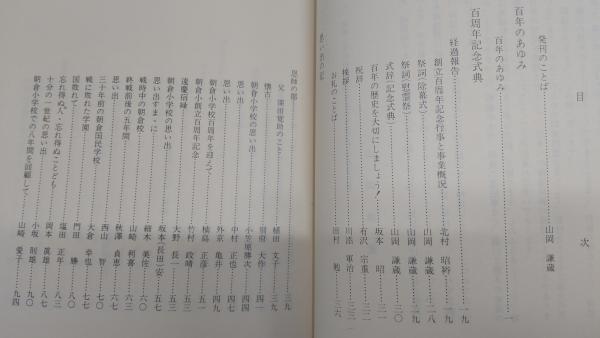 目　次
発刊のことば 山岡 謙蔵
百年のあゆみ
百年のあゆみ 一
百周年記念式典
経過報告 北村 昭 一九
創立百周年記念行事と事業概況 一九
祭詞(除幕式) 山岡 謙蔵 二八
祭詞(慰霊祭) 山岡 謙蔵 二九
式辞(記念式典) 山岡 謙蔵 三〇
百年の歴史を大切にしましょう! 坂本 昭 三一
祝辞 有沢 宗重 三二
挨拶 川添 軍治 三三
お礼のことば 田村 三六
思い出の記
恩師の部 三九
父 植田 文子 三九
懐古 別府 大作 四一
朝倉小学校の思い出 小笠原勝次 四四
思い出 中村 正也 四七
思い出 外京 亀井 四九
朝倉小学校百周年を迎えて 楠島 正彦 五一
朝倉小創立百周年記念 竹村 政晴
遠慶宿縁 大野 長一
朝倉小学校の思い出 坂本(長田)安
思い出すまゝに 細木 美佐 六一
戦時中の朝倉校 山崎 利喜 六三
終戦前後の五年間 秋澤 貞恵 六七
思い出 西山 智 七一
三十年前の朝倉国民学校 大倉 幸也 七七
戦に敗れた学園 門田 勝 八〇
国敗れて 塩田 正年 八三
忘れ得ぬ人・忘れ得ぬことども 岡本 眞雄 八七
十分の一世紀の思い出 小坂 則雄 九〇
朝倉小学校での八年間を回顧して 山崎 愛子 九四